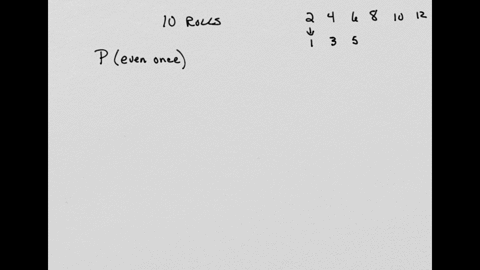 10 ROLLS
2 4 6 8 10 12
↓
1 3 5
P(even once)